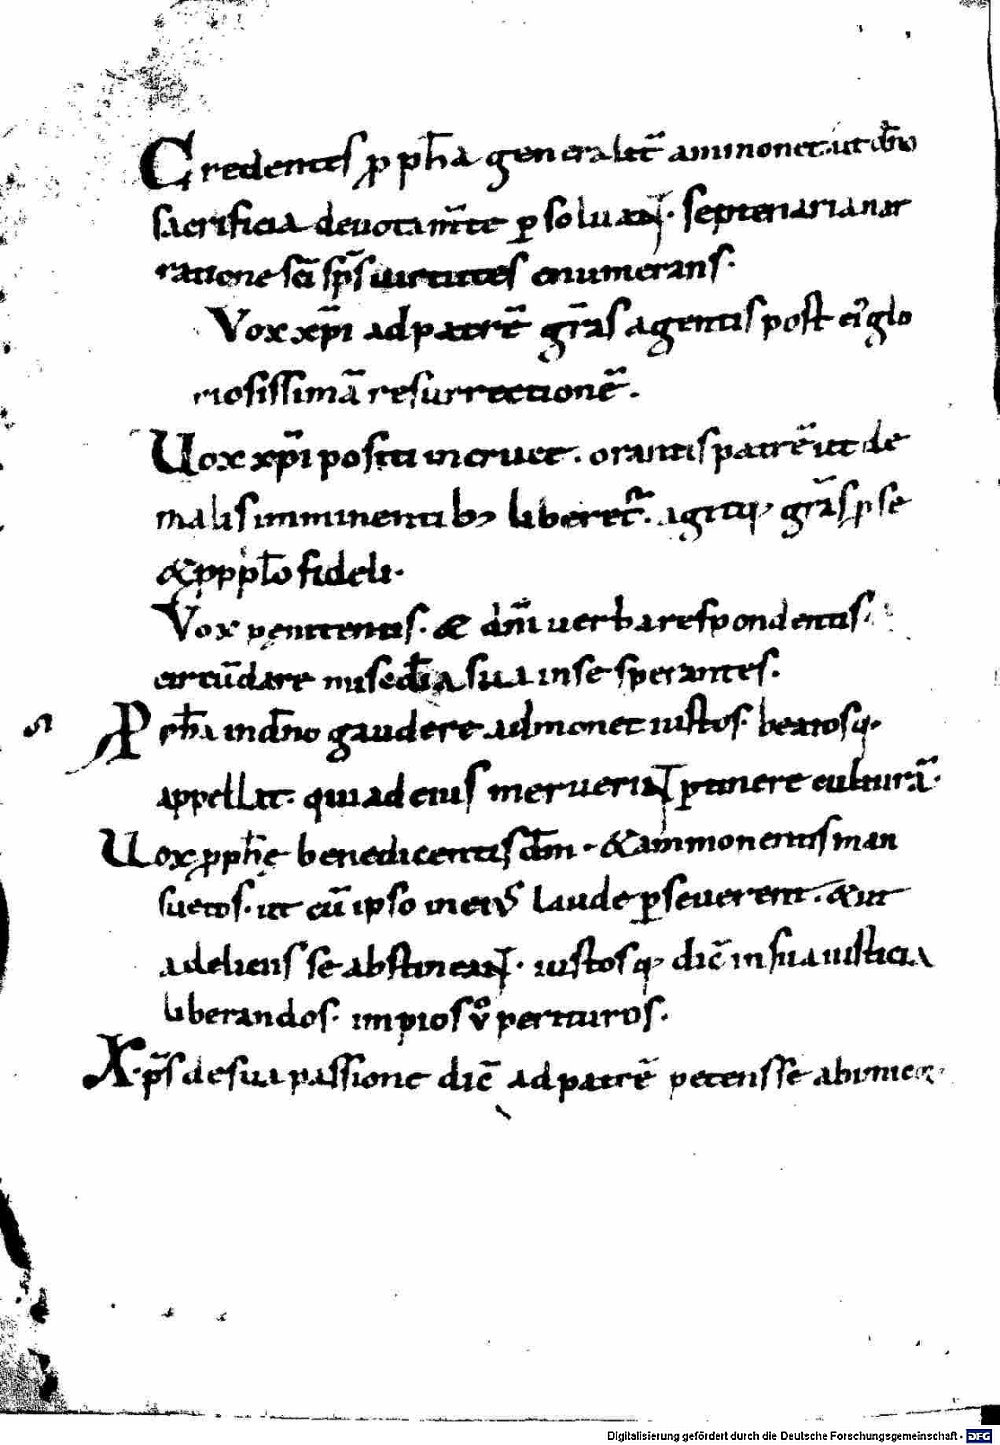 Credentes p̲ ph̄a generalit̄ ammonet· ut dn̄o
sacrificia deuotam̄te ꝑsoluant· septenaria nar
ratione sc̄i sp̄s uirtutes enumerans·
Vox xp̄i ad patrē gr̄as agentis post eiꝰ glo
riosissimā resurrectionē·
Uox xp̄i positi in cruce· orantis patrē ut de
malis imminentibꝫ liberet᷑· agitqꝫ gr̄as ꝓ se
& ꝓ pp̄lo fideli·
Vox penitentis· & dn̄i uerba respondentis·
circūdare misedīa sua in se sperantes·
Ph̄a in dn̄o gaudere admonet iustos· beatosq·
appellat· qui ad eius meruerint ꝑtinere culturā·
Uox ꝓph̄ę benedicentis dm̄· & ammonentis man
suetos· ut cū ipso in eius laude ꝑseuerent· & ut
a deliens se abstineant· iustosqꝫ dic̄ in sua iusticia
liberandos· impios ů perituros·
Xp̄s de sua passione dic̄ ad patrē petens se ab inimicꝫ·
Digitalisierung gefördert durch die Deutsche Forschungsgemeinschaft - DFG